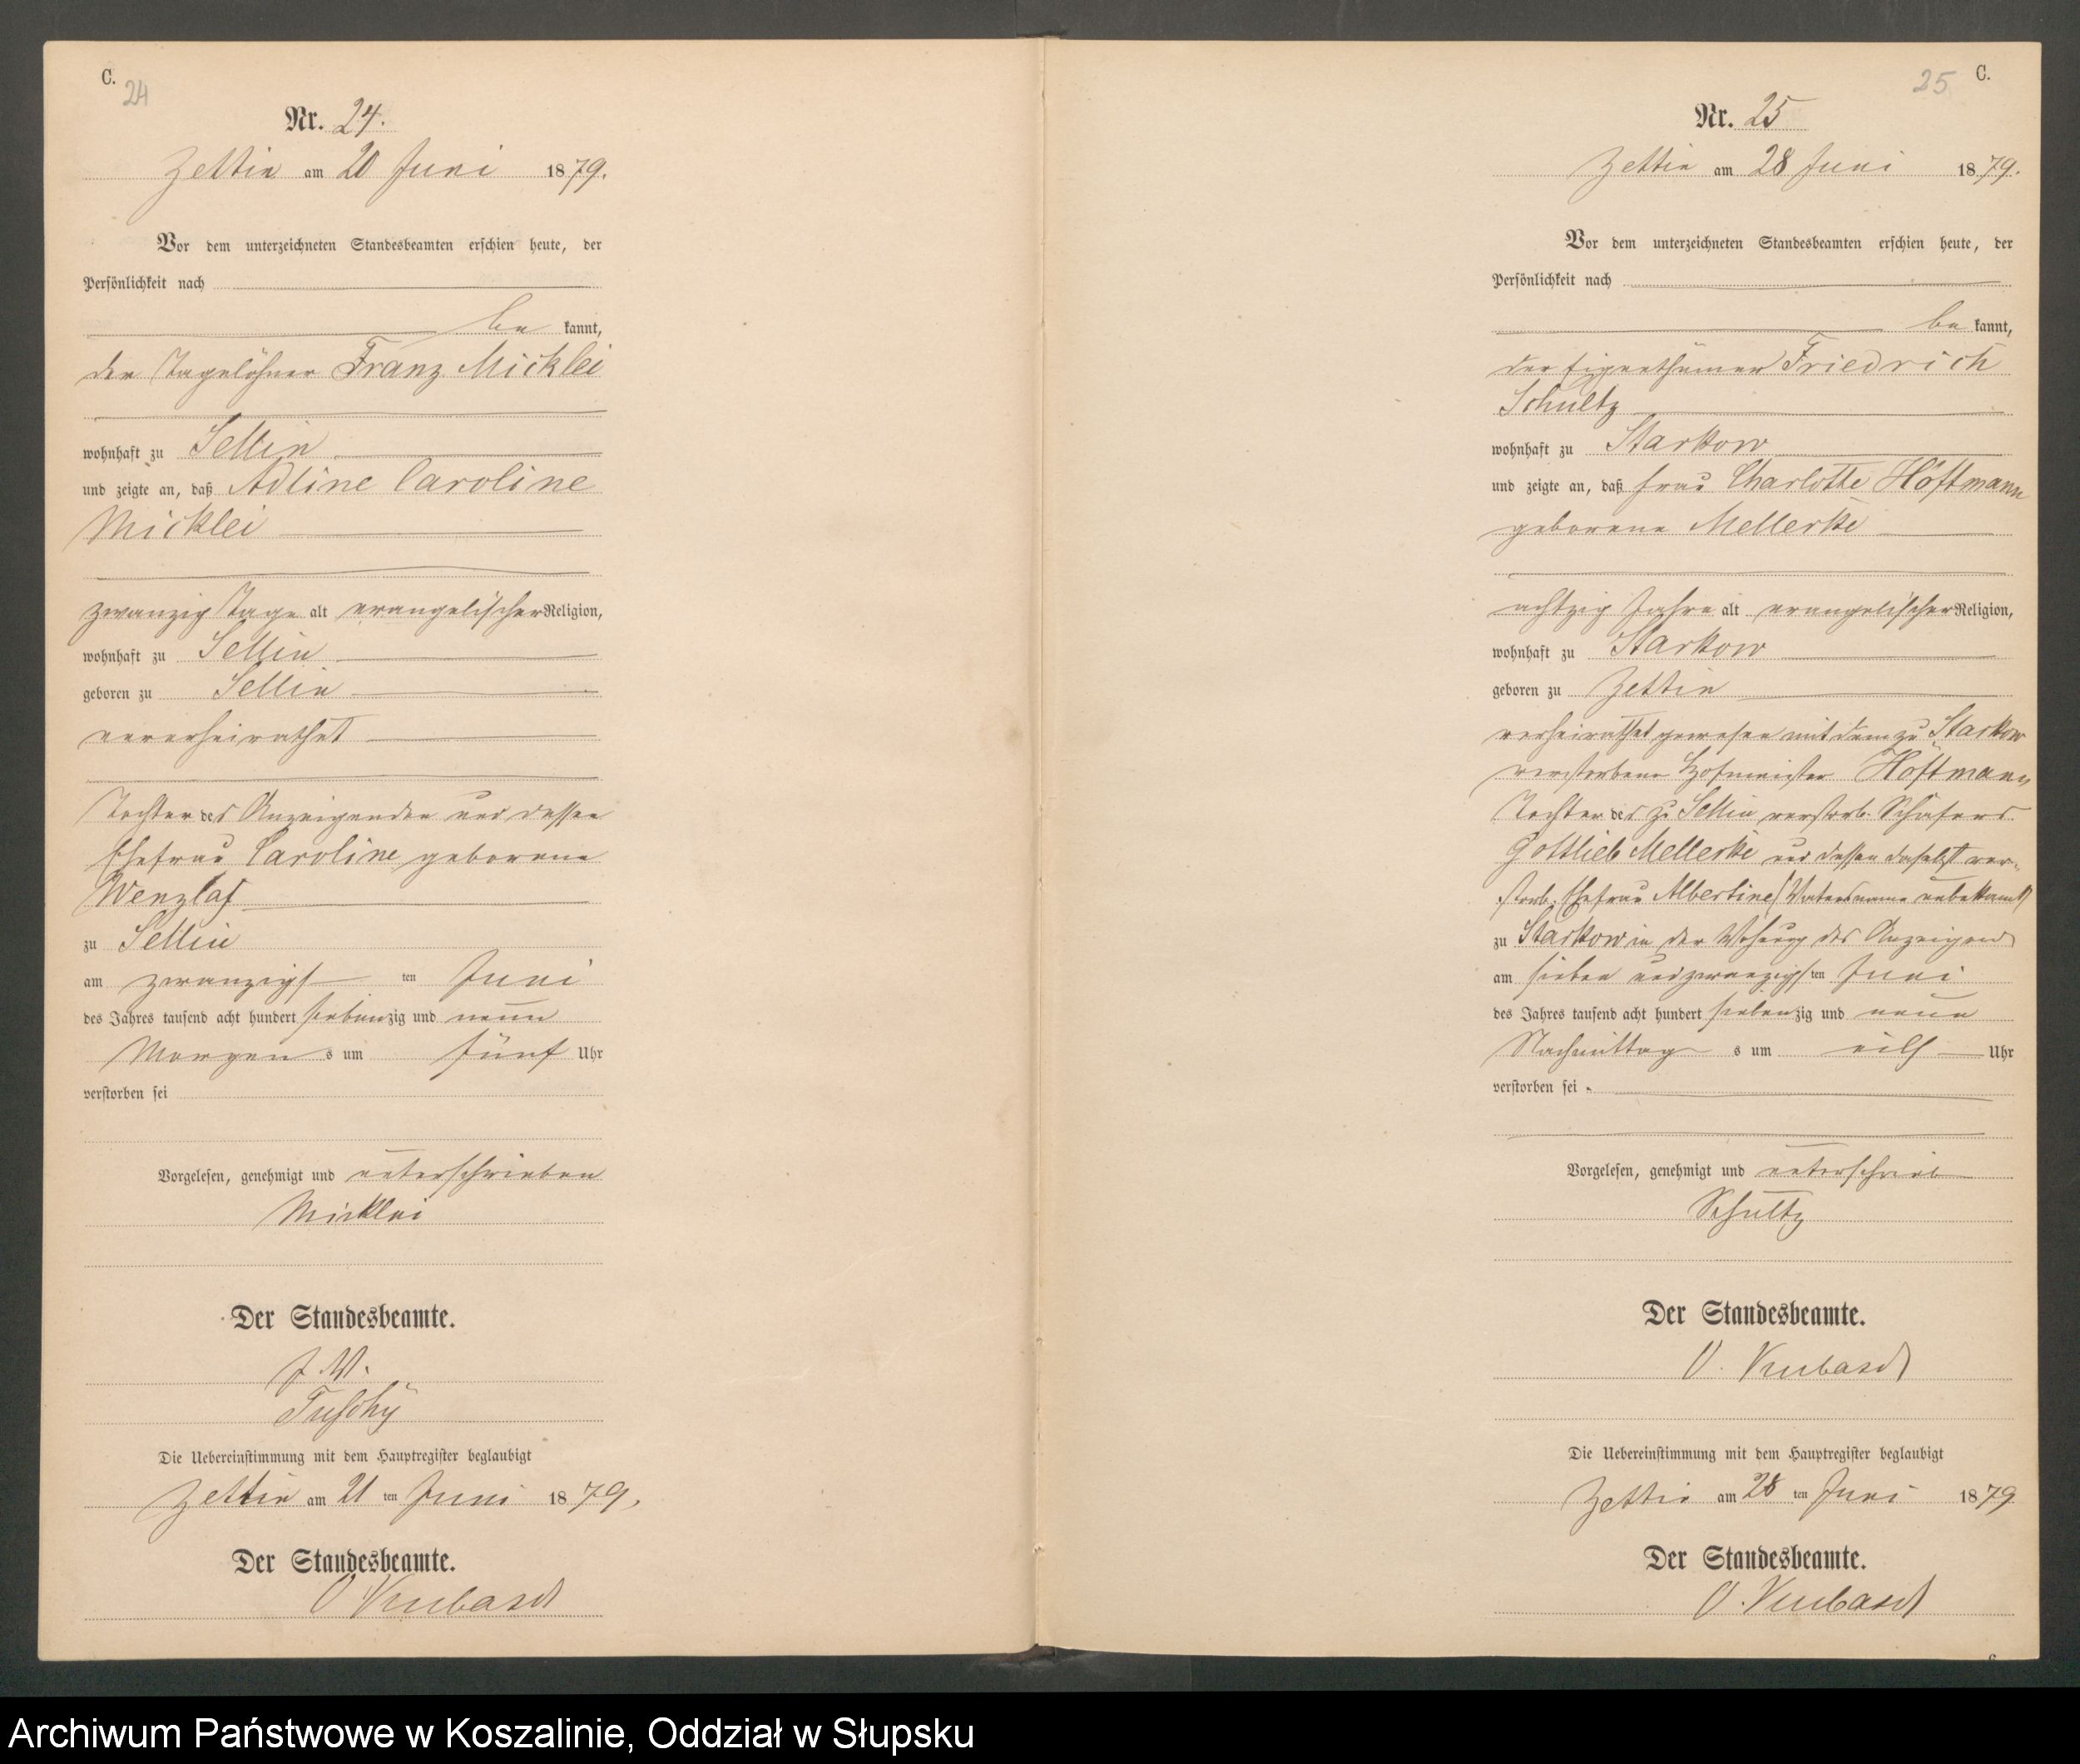 C.
24
Nr. 24.
Zettin am 20 Juni 1879.
Vor dem unterzeichneten Standesbeamten erschien heute, der
Persönlichkeit nach
be kannt,
der Tagelöhner Franz Micklei
wohnhaft zu Sellin
und zeigte an, daß Adline Caroline
Micklei
zwanzig Tage alt evangelischer Religion,
wohnhaft zu Sellin
geboren zu Sellin
unverheirathet
Tochter des Anzeigenden und dessen
Ehefrau Caroline geborene
Wenzlaf
zu Sellin
am zwanzigsten Juni
des Jahres tausend acht hundert siebenzig und neun
Morgens um fünf Uhr
verstorben sei
Vorgelesen, genehmigt und unterschrieben
Micklei
Der Standesbeamte.
J. V.
Die Uebereinstimmung mit dem Hauptregister beglaubigt
Zettin am 21 ten Juni 1879.
Der Standesbeamte.
25
C.
Nr. 25
Zettin am 28 Juni 1879.
Vor dem unterzeichneten Standesbeamten erschien heute, der
Persönlichkeit nach
be kannt,
der Eigenthümer Friedrich
Schultz
wohnhaft zu Starkow
und zeigte an, daß Frau Charlotte Höftmann
geborene Mellerke
achtzig Jahre alt evangelischer Religion,
wohnhaft zu Starkow
geboren zu Zettin
verheirathet gewesen mit dem zu Starkow
verstorbene Hofmeister Höftmann
Tochter des zu Sellin verstorb. Schäfers
Gottlieb Mellerke und dessen daselbst ver-
storb. Ehefrau Albertine (Vatersname unbekannt)
zu Starkow in der Wohnung des Anzeigend
am sieben und zwanzigsten Juni
des Jahres tausend acht hundert siebenzig und neun
Nachmittags um eilf Uhr
verstorben sei
Vorgelesen, genehmigt und unterschrieb
Schultz
Der Standesbeamte.
Die Uebereinstimmung mit dem Hauptregister beglaubigt
Zettin am 28 ten Juni 1879
Der Standesbeamte.
Archiwum Państwowe w Koszalinie, Oddział w Słupsku